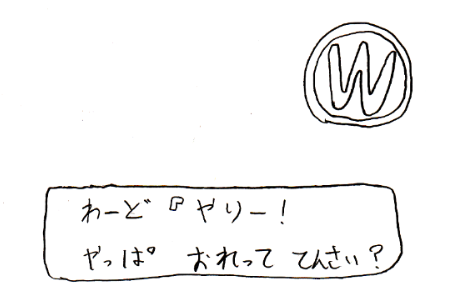 W
わーど『やりー!
やっぱ おれって てんさい?